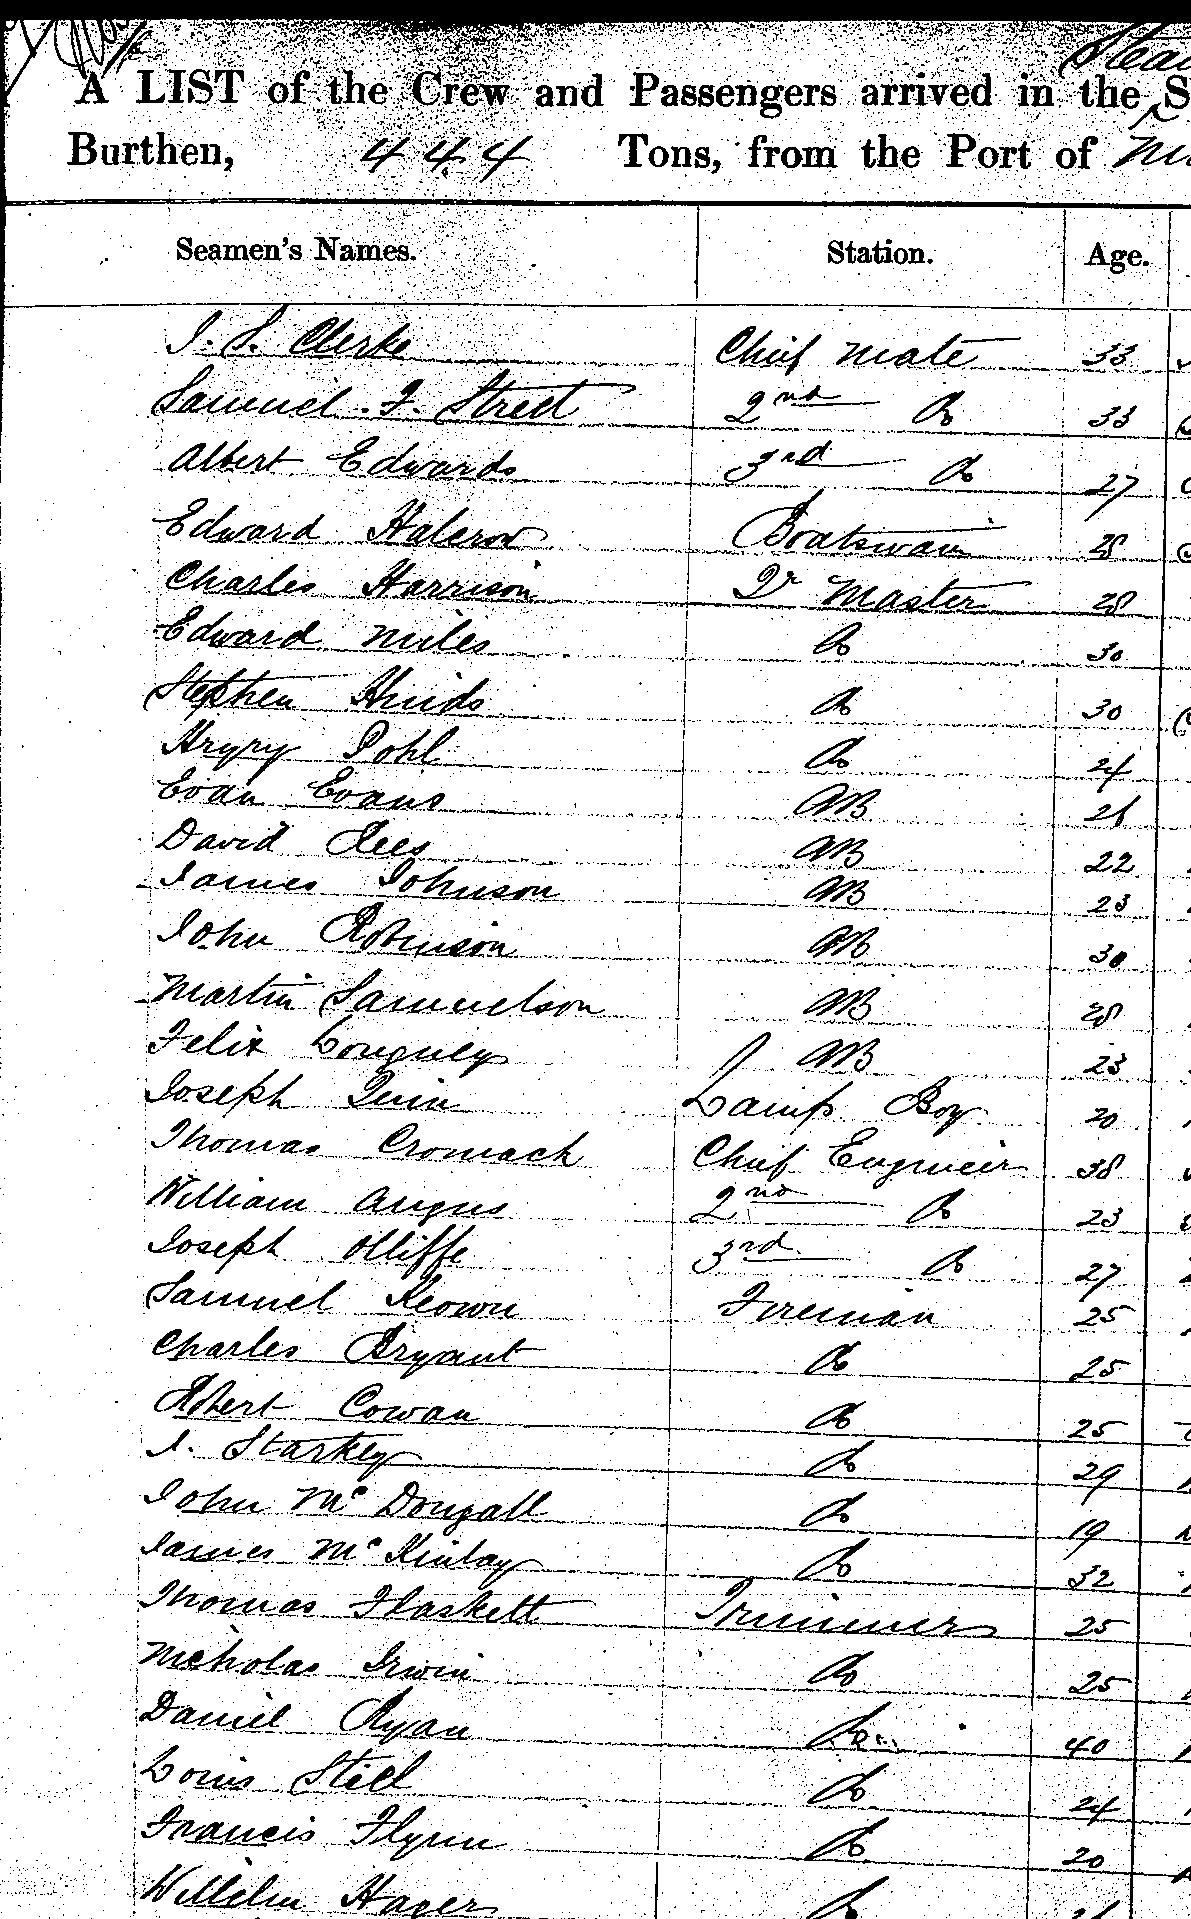 Stea
A LIST of the Crew and Passengers arrived in the S
Burthen, 444 Tons, from the Port of
Seamen's Names. Station. Age.
J. S. Clerke Chief Mate 33
Samuel F. Street 2nd Do 33
Albert Edwards 3rd Do 27
Edward Halcrow Boatswain 28
Charles Harrison Qr Master 28
Edward Miles Do 30
Stephen Hinds Do 30
Hryry Pohl Do 24
Evan Evans AB 26
David Rees AB 22
James Johnson AB 23
John Robinson AB 30
Martin Samuelson AB 28
Felix AB 23
Joseph Quin Lamp Boy 20
Thomas Cromach Chief Engineer 38
William Angus 2nd Do 23
Joseph Olliffe 3rd Do 27
Samuel Keown Fireman 25
Charles Bryant Do 25
Robert Cowan Do 25
A. Starkey Do 29
John Mc Dougall Do 19
James Mc Kinlay Do 32
Thomas Flaskett Trimmers 25
Nicholas Irwin Do 25
Daniel Ryan Do 40
Louis Steel Do 24
Francis Flynn Do 20
Willilm Hager Do